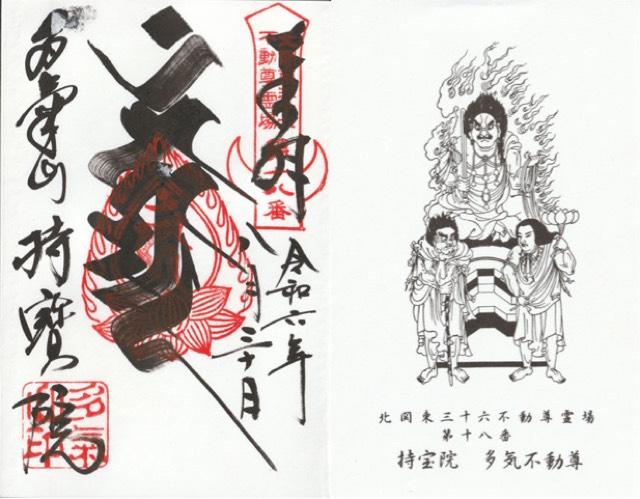 奉拝
不動尊霊場
八番
令和六年
八月三十日
多氣山 持寳院
北関東三十六不動尊霊場
第十八番
持宝院 多気不動尊